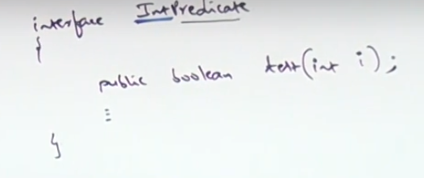 interface IntPredicate
{
public boolean test(int i);
⋮
}